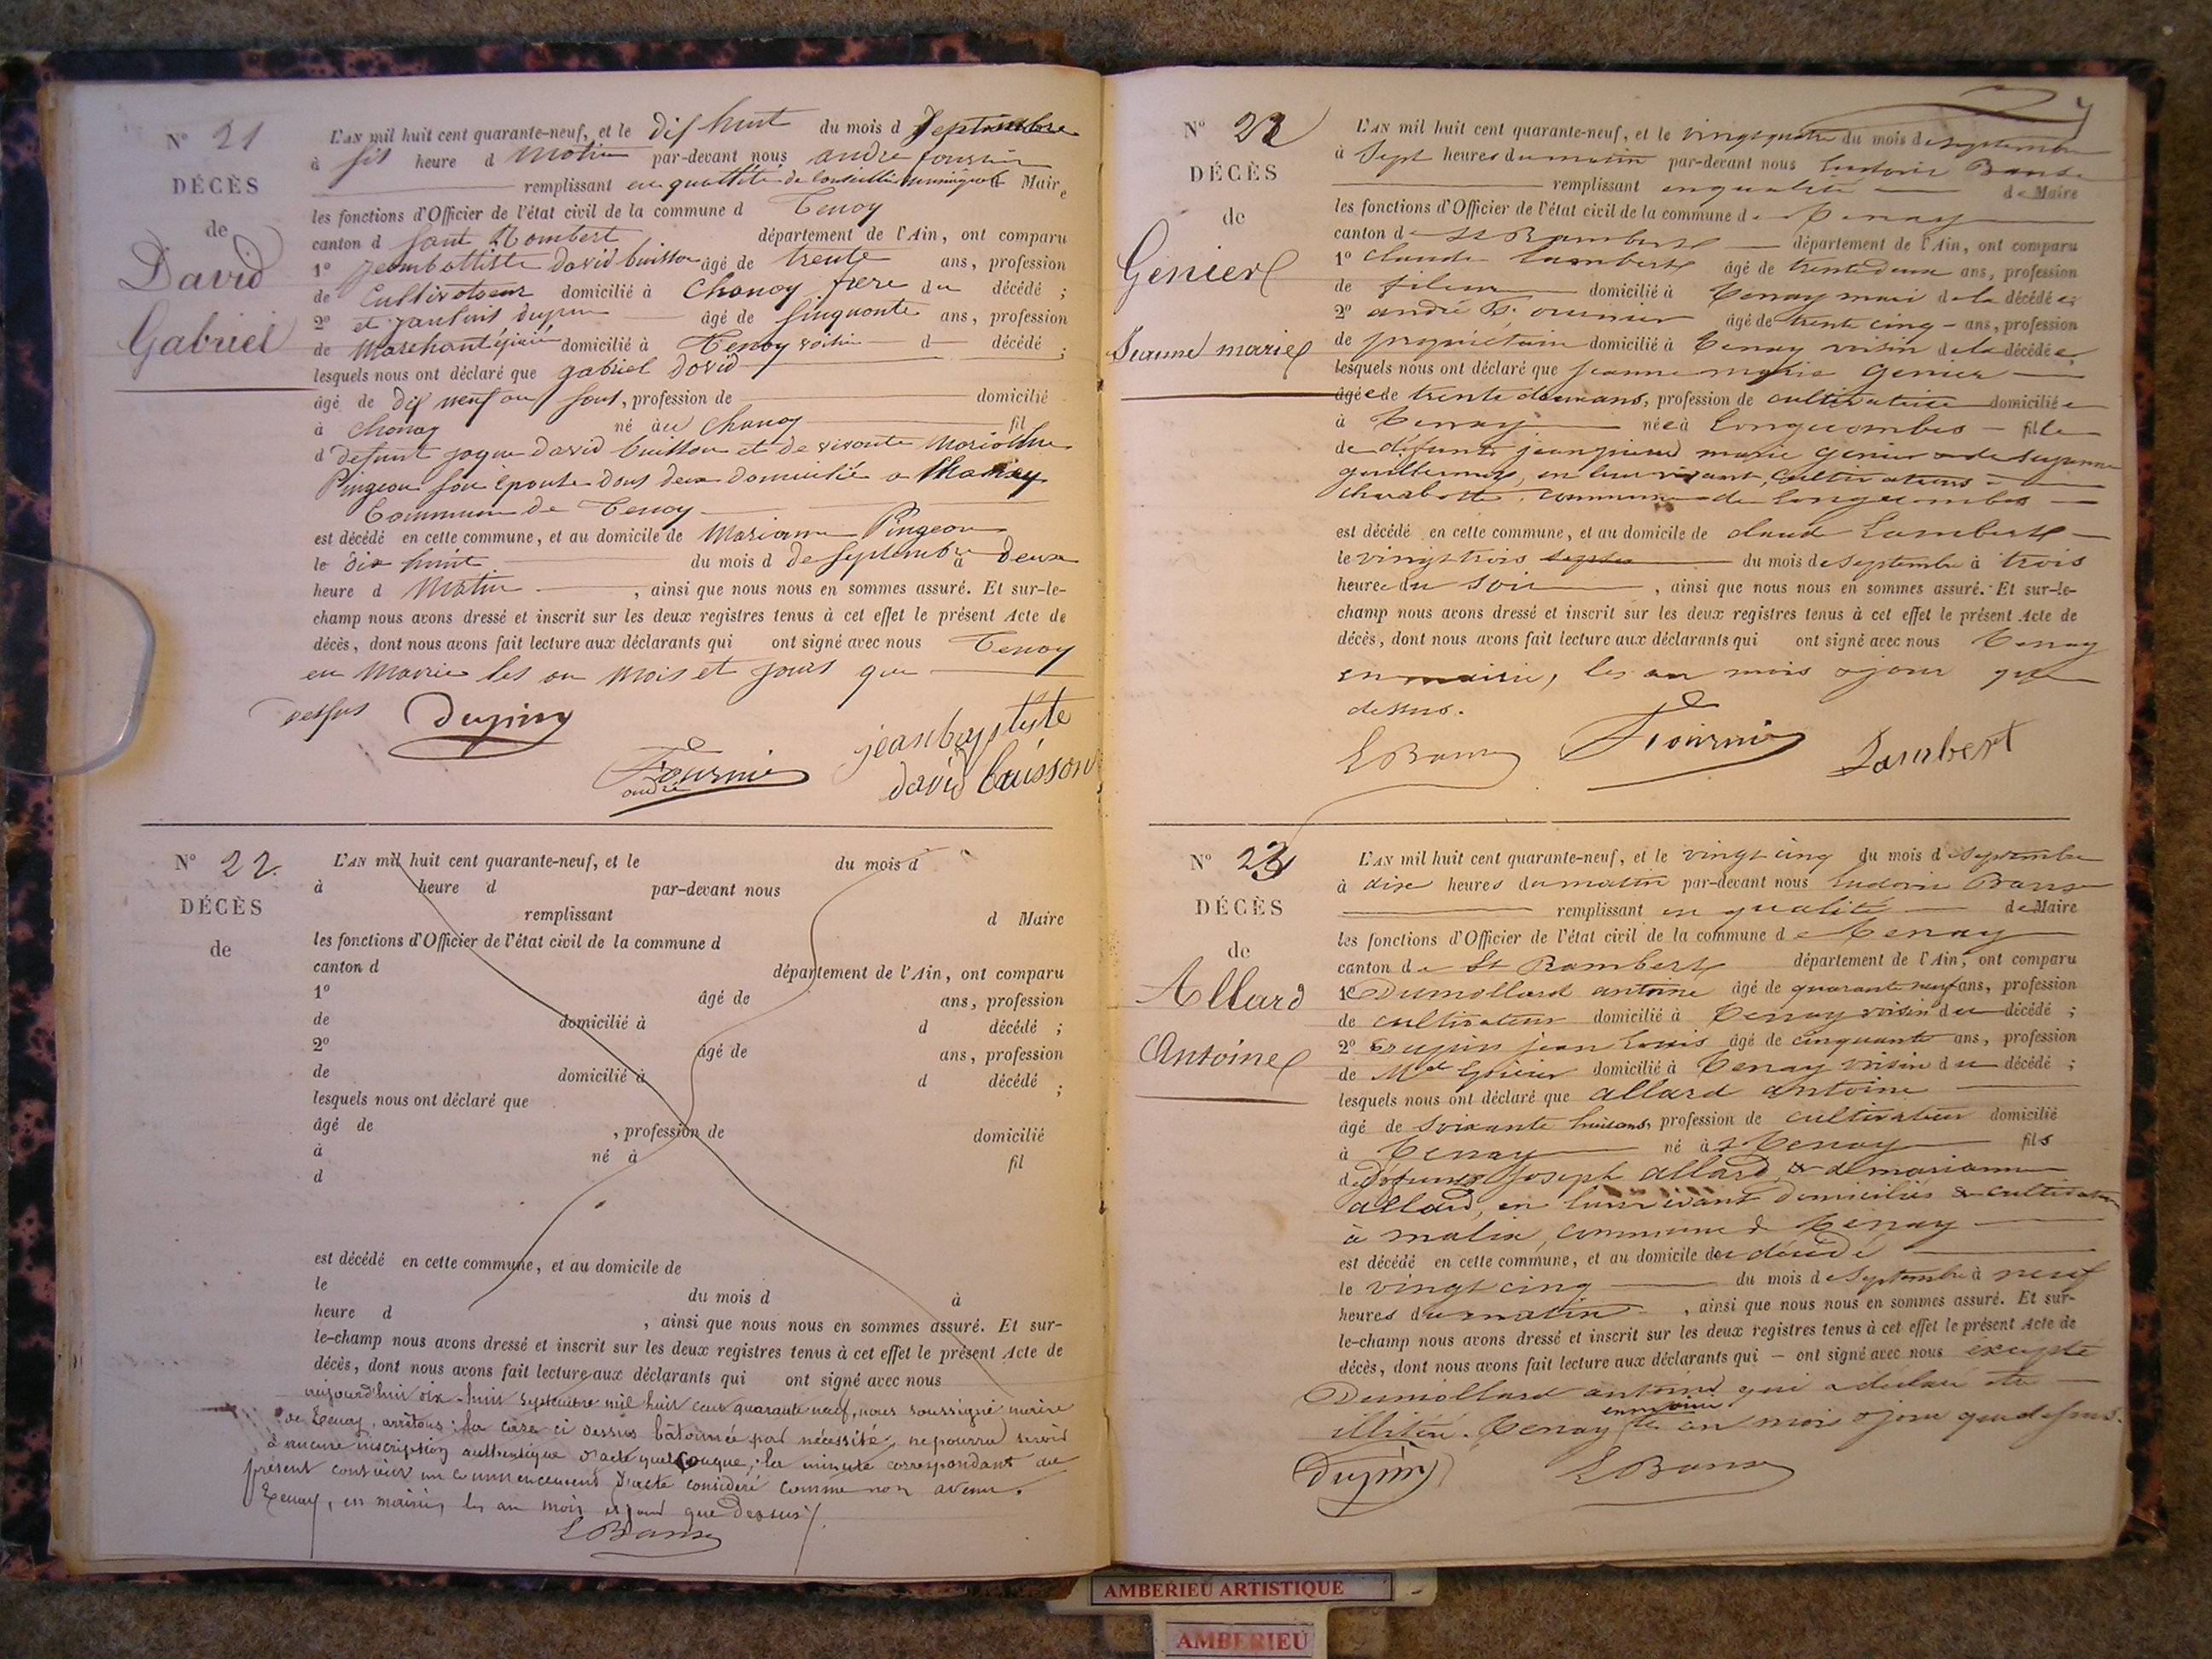 N° 21
DÉCÈS
de
David
Gabriel
L'AN mil huit cent quarante-neuf, et le dix huit du mois d Septembre
à six heure d Matin par-devant nous andré fournier
remplissant en quallité de Conseillié municipal Maire
les fonctions d'Officier de l'état civil de la commune d Tenay
canton d saint Rombert département de l'Ain, ont comparu
1° jeanbattiste david buisson âgé de trente ans, profession
de Cultivateur domicilié à Chanay frere du décédé ;
2° et janluis dupin âgé de sinquante ans, profession
de Marchant épicié domicilié à Tenay voisin d décédé ;
lesquels nous ont déclaré que gabriel david
âgé de dix neuf an , profession de domicilié
à Chanay né àu Chanay fil
d defunt david buisson et de vivante
Pingeon son épouse domicilié a Chanay
Commune de Tenay
est décédé en cette commune, et au domicile de Mariane Pingeon
le dix huit du mois d de septembre à deux
heure d Matin , ainsi que nous nous en sommes assuré. Et sur-le-
champ nous avons dressé et inscrit sur les deux registres tenus à cet effet le présent Acte de
décès, dont nous avons fait lecture aux déclarants qui ont signé avec nous Tenay
en Mairie les an Mois et jours que
dessus Dupin
Fournier
andré
jeanbaptiste
david buisson
N° 22.
DÉCÈS
de
L'AN mil huit cent quarante-neuf, et le du mois d
à heure d par-devant nous
remplissant d Maire
les fonctions d'Officier de l'état civil de la commune d
canton d département de l'Ain, ont comparu
1° âgé de ans, profession
de domicilié à d décédé ;
2° âgé de ans, profession
de domicilié à d décédé ;
lesquels nous ont déclaré que
âgé de , profession de domicilié
à né à fil
d
est décédé en cette commune, et au domicile de
le du mois d à
heure d , ainsi que nous nous en sommes assuré. Et sur-
le-champ nous avons dressé et inscrit sur les deux registres tenus à cet effet le présent Acte de
décès, dont nous avons fait lecture aux déclarants qui ont signé avec nous
aujourd'hui dix-huit septembre mil huit cent quarante neuf, nous soussigné maire
de Tenay, arrêtons : la case ci dessus bâtonnée par nécessité, ne pourra servir
à aucune inscription authentique d'acte quelconque ; la minute correspondant au
présent contient un commencement d'acte considéré comme non avenu.
Tenay, en mairie, les an mois et jour que dessus
N° 22
DÉCÈS
de
Genier
Jeanne marie
L'AN mil huit cent quarante-neuf, et le vingt quatre du mois de septembre
à sept heures du matin par-devant nous Ludovic
remplissant en qualité de Maire
les fonctions d'Officier de l'état civil de la commune de Tenay
canton de St Rambert département de l'Ain, ont comparu
1° Claude Lambert âgé de trente deux ans, profession
de fileur domicilié à Tenay mari de la décédée;
2° andré F. ournier âgé de trente cinq ans, profession
de propriétaire domicilié à Tenay voisin de la décédée;
lesquels nous ont déclaré que jeanne marie Genier
âgée de trente deux ans, profession de cultivatrice domiciliée
à Tenay née à Longecombes fille
de défunts marie Genier & de suzanne
en leur vivant, Cultivateurs
commune de Longecombes
est décédé en cette commune, et au domicile de claude Lambert
le vingt trois du mois de septembre à trois
heures du soir , ainsi que nous nous en sommes assuré. Et sur-le-
champ nous avons dressé et inscrit sur les deux registres tenus à cet effet le présent Acte de
décès, dont nous avons fait lecture aux déclarants qui ont signé avec nous Tenay
en mairie, les an mois & jour que
dessus.
Fournier Lambert
N° 23
DÉCÈS
de
Allard
Antoine
L'AN mil huit cent quarante-neuf, et le vingt cinq du mois d septembre
à dix heures du matin par-devant nous Ludovic
remplissant en qualité de Maire
les fonctions d'Officier de l'état civil de la commune de Tenay
canton de St Rambert département de l'Ain, ont comparu
1° Dumollard antoine âgé de quarante neuf ans, profession
de cultivateur domicilié à Tenay voisin du décédé ;
2° Dupin jean Louis âgé de cinquante ans, profession
de Md Epicier domicilié à Tenay voisin du décédé ;
lesquels nous ont déclaré que allard antoine
âgé de soixante huit ans, profession de cultivateur domicilié
à Tenay né à Tenay fils
de défunts Joseph allard & de marianne
allard, en leur vivant domiciliés & cultivateurs
à malix, commune de Tenay
est décédé en cette commune, et au domicile du décédé
le vingt cinq du mois de Septembre à neuf
heures du matin , ainsi que nous nous en sommes assuré. Et sur-
le-champ nous avons dressé et inscrit sur les deux registres tenus à cet effet le présent Acte de
décès, dont nous avons fait lecture aux déclarants qui – ont signé avec nous excepté
Dumollard antoine qui a déclaré être
illitéré. Tenay en mairie les an mois & jour que dessus.
Dupin
AMBERIEU ARTISTIQUE
AMBERIEU